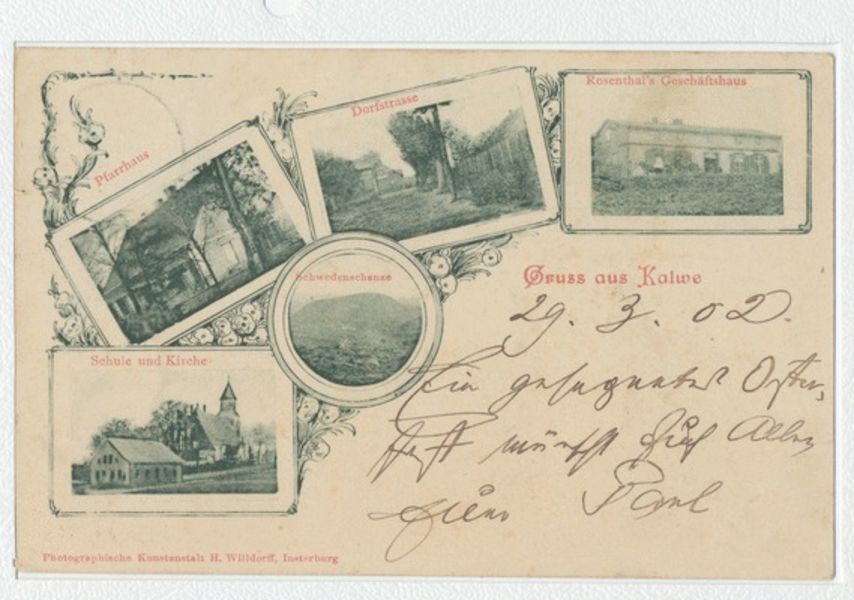 Pfarrhaus
Dorfstrasse
Rosenthal's Geschäftshaus
Schwedenschanze
Schule und Kirche
Gruss aus Kalwe
29. 3. 02.
Ein gesegnetes Oster-
fest wünscht Euch Allen
Euer Paul
Photographische Kunstanstalt H. Willdorff, Insterburg